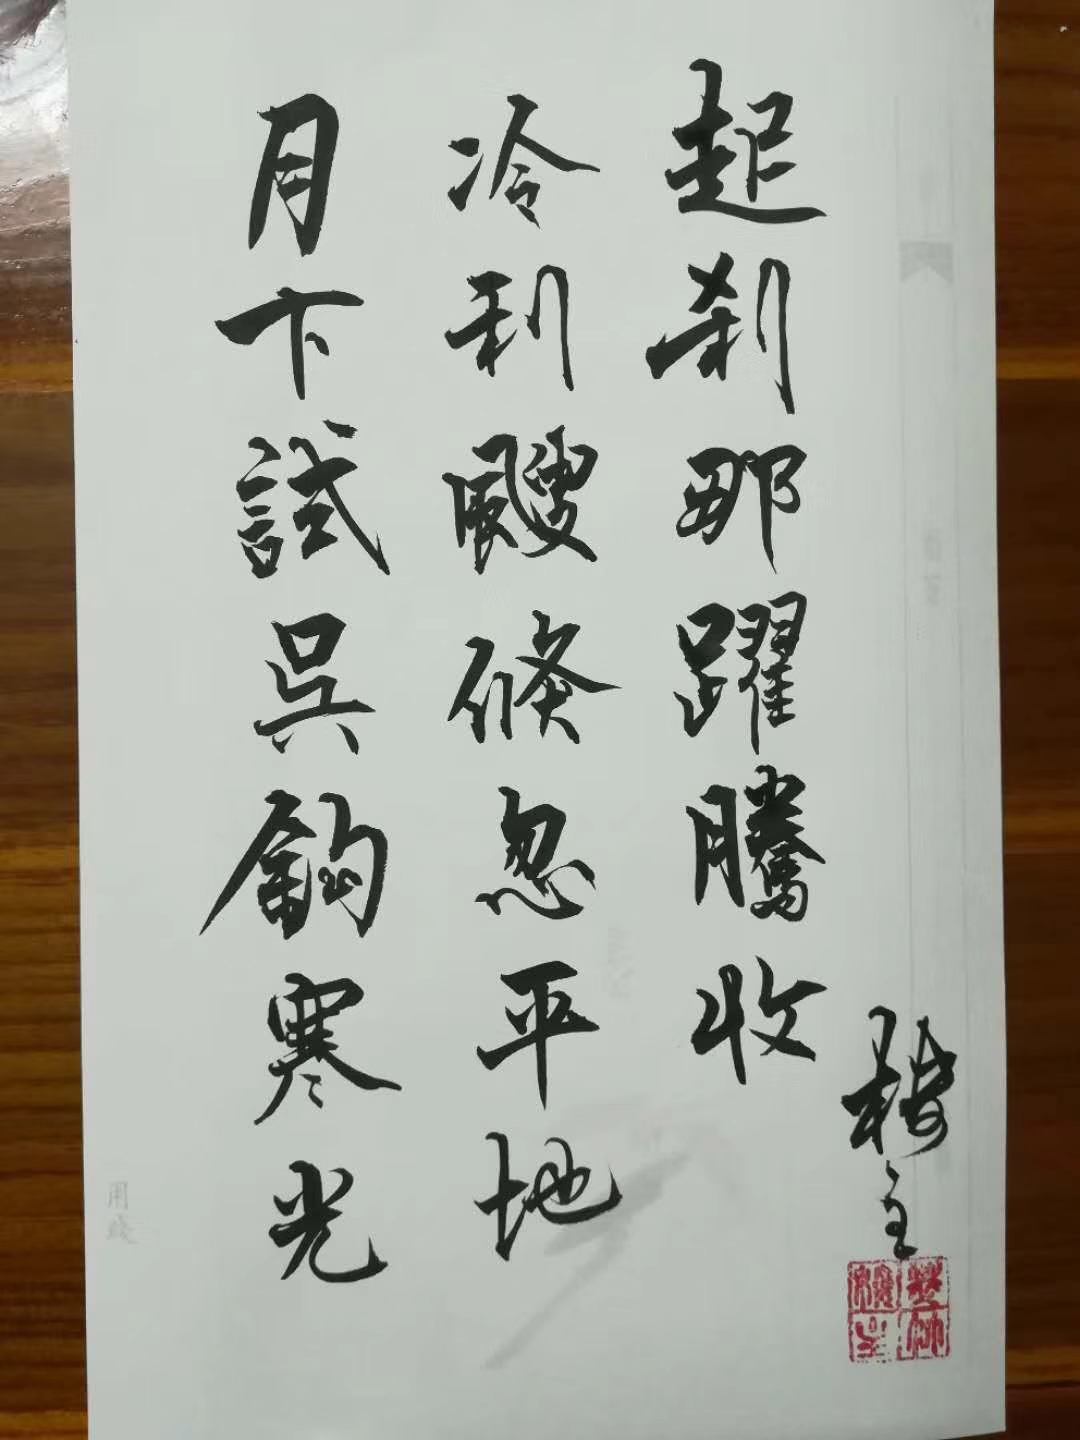 月下試吳鈎寒光
冷利颼倏忽平地
起刹那躍騰收
用箋